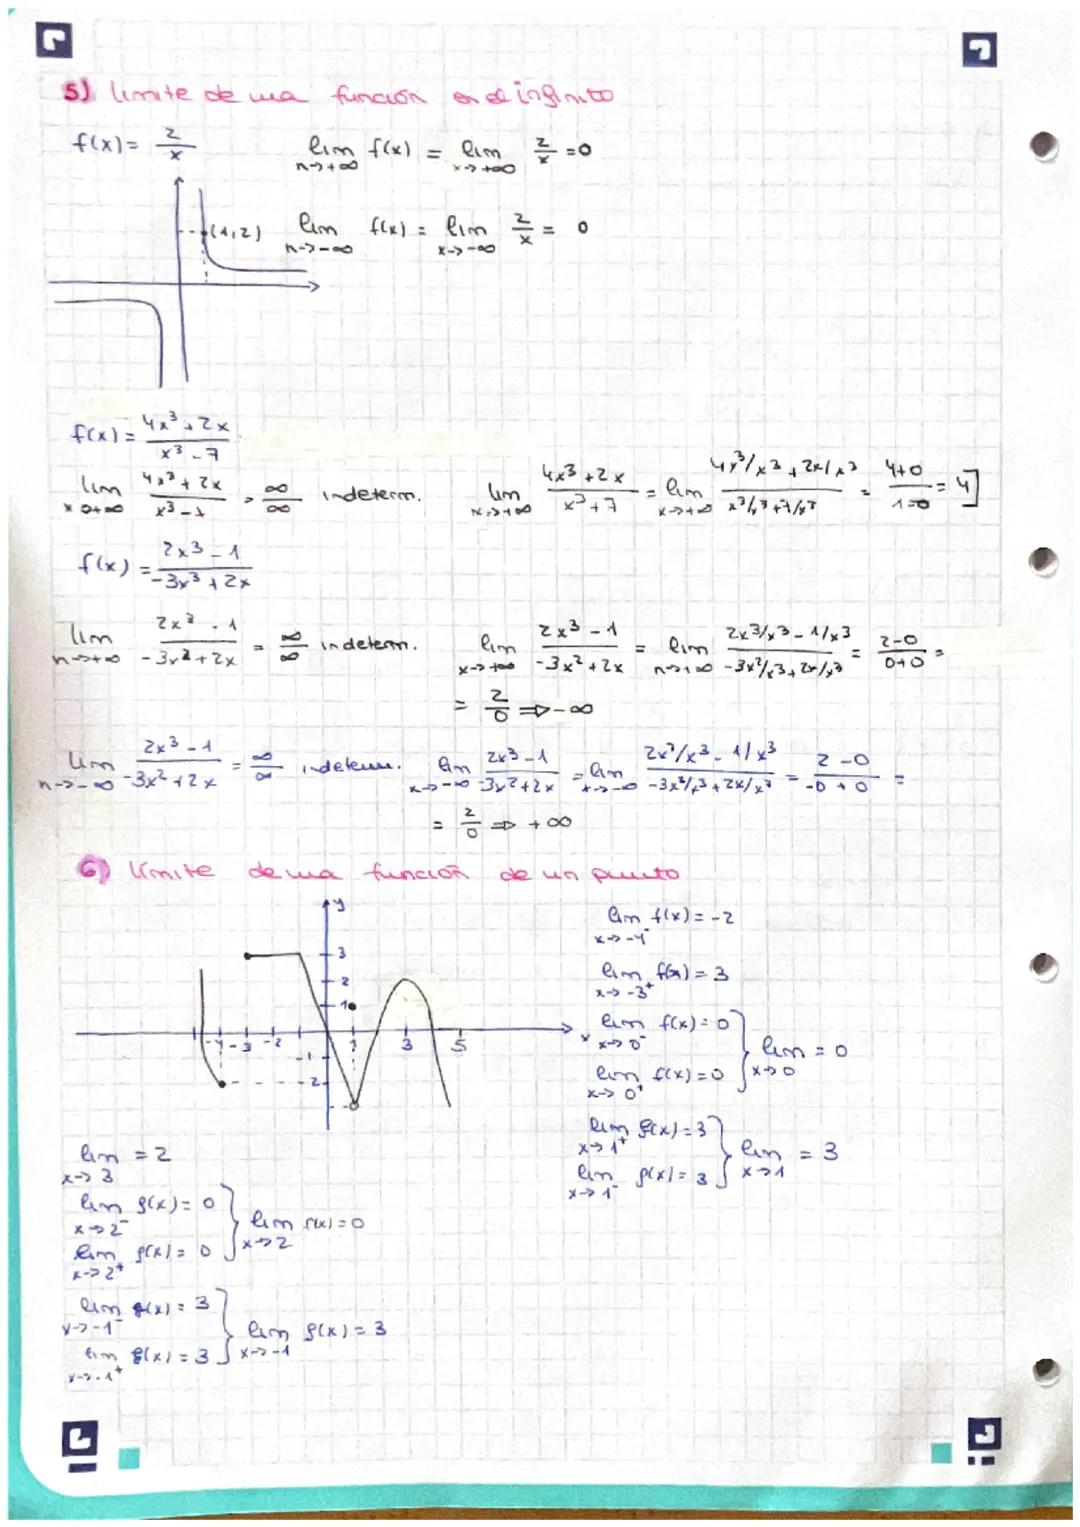 5) límite de una función en el infinito
f(x)= 2/x
lim n->+∞ f(x) = lim x->+∞ 2/x =0
(1,2)
lim n->-∞ f(x) = lim x->-∞ 2/x = 0
f(x)= (4x³+2x)/(x³-7)
lim x->+∞ (4x³+2x)/(x³-x) = ∞/∞ indeterm.
lim x->+∞ (4x³+2x)/(x³+7) = lim x->+∞ (4x³/x³+2x/x³)/(x³/x³+7/x³) = (4+0)/(1-0) = 4]
f(x) = (2x³-1)/(-3x³+2x)
lim n->+∞ (2x³-1)/(-3x²+2x) = ∞/∞ indeterm.
lim x->+∞ (2x³-1)/(-3x²+2x) = lim n->+∞ (2x³/x³-1/x³)/(-3x²/x³+2x/x³) = (2-0)/(0+0) =
= 2/0 => -∞
lim n->-∞ (2x³-1)/(-3x²+2x) = ∞/∞ indeterm.
lim x->-∞ (2x³-1)/(-3x²+2x) = lim x->-∞ (2x³/x³-1/x³)/(-3x²/x³+2x/x³) = (2-0)/(-0+0) =
= 2/0 => +∞
6) límite de una función de un punto
y
3
2
1
-4 -3 -2 1 3 5 x
-1
-2
lim x->-4⁻ f(x) = -2
lim x->-3⁺ f(x) = 3
lim x->0⁻ f(x) = 0
lim x->0⁺ f(x) = 0
} lim x->0 = 0
lim x->1⁺ f(x) = 3
lim x->1⁻ f(x) = 3
} lim x->1 = 3
lim x->3 = 2
lim x->2⁻ f(x) = 0
lim x->2⁺ f(x) = 0
} lim x->2 f(x) = 0
lim x->-1⁻ f(x) = 3
lim x->-1⁺ f(x) = 3
} lim x->-1 f(x) = 3